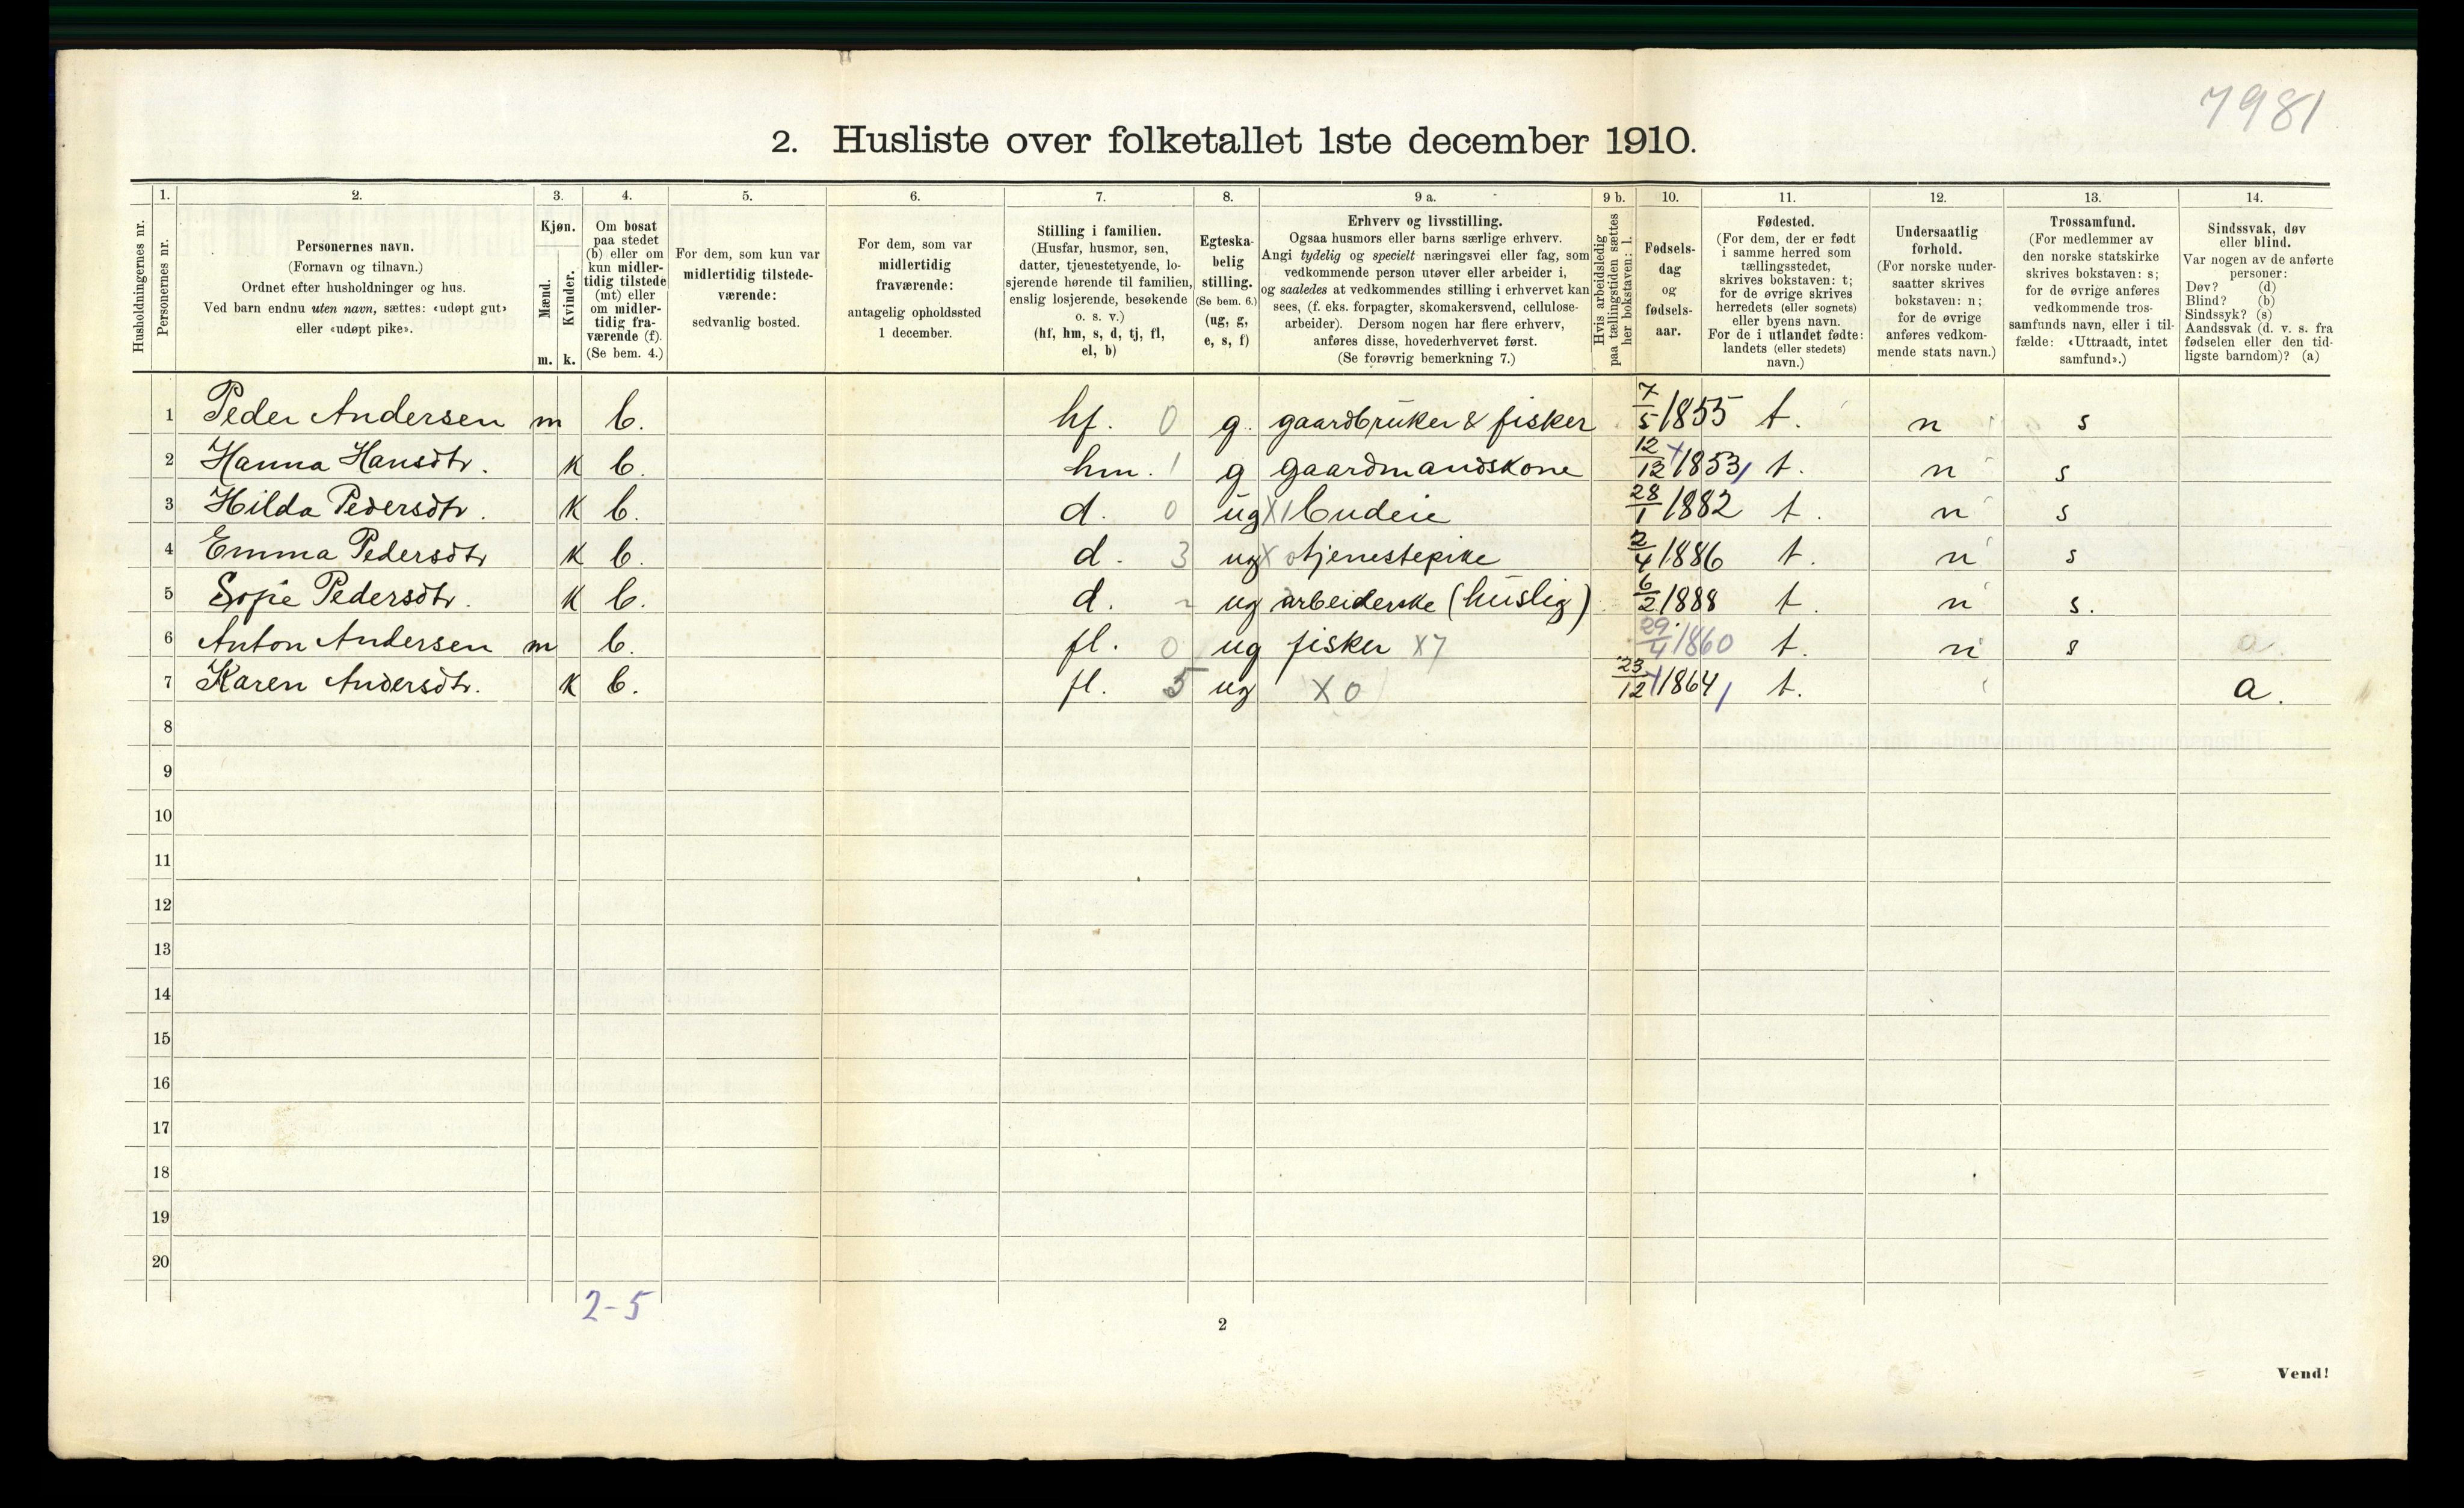 7981
2. Husliste over folketallet 1ste december 1910.
Husholdningernes nr.
1. Personernes nr.
2. Personernes navn. (Fornavn og tilnavn.) Ordnet efter husholdninger og hus. Ved barn endnu uten navn, sættes: «udøpt gut» eller «udøpt pike».
3. Kjøn. Mænd. m. Kvinder. k.
4. Om bosat paa stedet (b) eller om kun midlertidig tilstede (mt) eller om midlertidig fraværende (f). (Se bem. 4.)
5. For dem, som kun var midlertidig tilstedeværende: sedvanlig bosted.
6. For dem, som var midlertidig fraværende: antagelig opholdssted 1 december.
7. Stilling i familien. (Husfar, husmor, søn, datter, tjenestetyende, losjerende hørende til familien, enslig losjerende, besøkende o. s. v.) (hf, hm, s, d, tj, fl, el, b)
8. Egteskabelig stilling. (Se bem. 6.) (ug, g, e, s, f)
9 a. Erhverv og livsstilling. Ogsaa husmors eller barns særlige erhverv. Angi tydelig og specielt næringsvei eller fag, som vedkommende person utøver eller arbeider i, og saaledes at vedkommendes stilling i erhvervet kan sees, (f. eks. forpagter, skomakersvend, cellulosearbeider). Dersom nogen har flere erhverv, anføres disse, hovederhvervet først. (Se forøvrig bemerkning 7.)
9 b. Hvis arbeidsledig paa tællingstiden sættes her bokstaven: l.
10. Fødselsdag og fødselsaar.
11. Fødested. (For dem, der er født i samme herred som tællingsstedet, skrives bokstaven: t; for de øvrige skrives herredets (eller sognets) eller byens navn. For de i utlandet fødte: landets (eller stedets) navn.)
12. Undersaatlig forhold. (For norske undersaatter skrives bokstaven: n; for de øvrige anføres vedkommende stats navn.)
13. Trossamfund. (For medlemmer av den norske statskirke skrives bokstaven: s; for de øvrige anføres vedkommende trossamfunds navn, eller i tilfælde: «Uttraadt, intet samfund».)
14. Sindssvak, døv eller blind. Var nogen av de anførte personer: Døv? (d) Blind? (b) Sindssyk? (s) Aandssvak (d. v. s. fra fødselen eller den tidligste barndom)? (a)
1 Peder Andersen m b. hf. 0 g. gaardbruker & fisker 7/5 1855 t. n s
2 Hanna Hansdtr. k b. hm. 1 g gaardmandskone 12/12 1853 t. n s
3 Hilda Pedersdtr. k b. d. 0 ug X1 budeie 28/1 1882 t. n s
4 Emma Pedersdtr k b. d. 3 ug X0 tjenestepike 2/4 1886 t. n s
5 Sofie Pedersdtr. k b. d. ug arbeiderske (huslig) 6/2 1888 t. n s.
6 Anton Andersen m b. fl. 0 ug fisker X7 29/4 1860 t. n s a.
7 Karen Andersdtr. k b. fl. 5 ug X0 23/12 1864 t. a.
8
9
10
11
12
13
14
15
16
17
18
19
20
2-5
2
Vend!